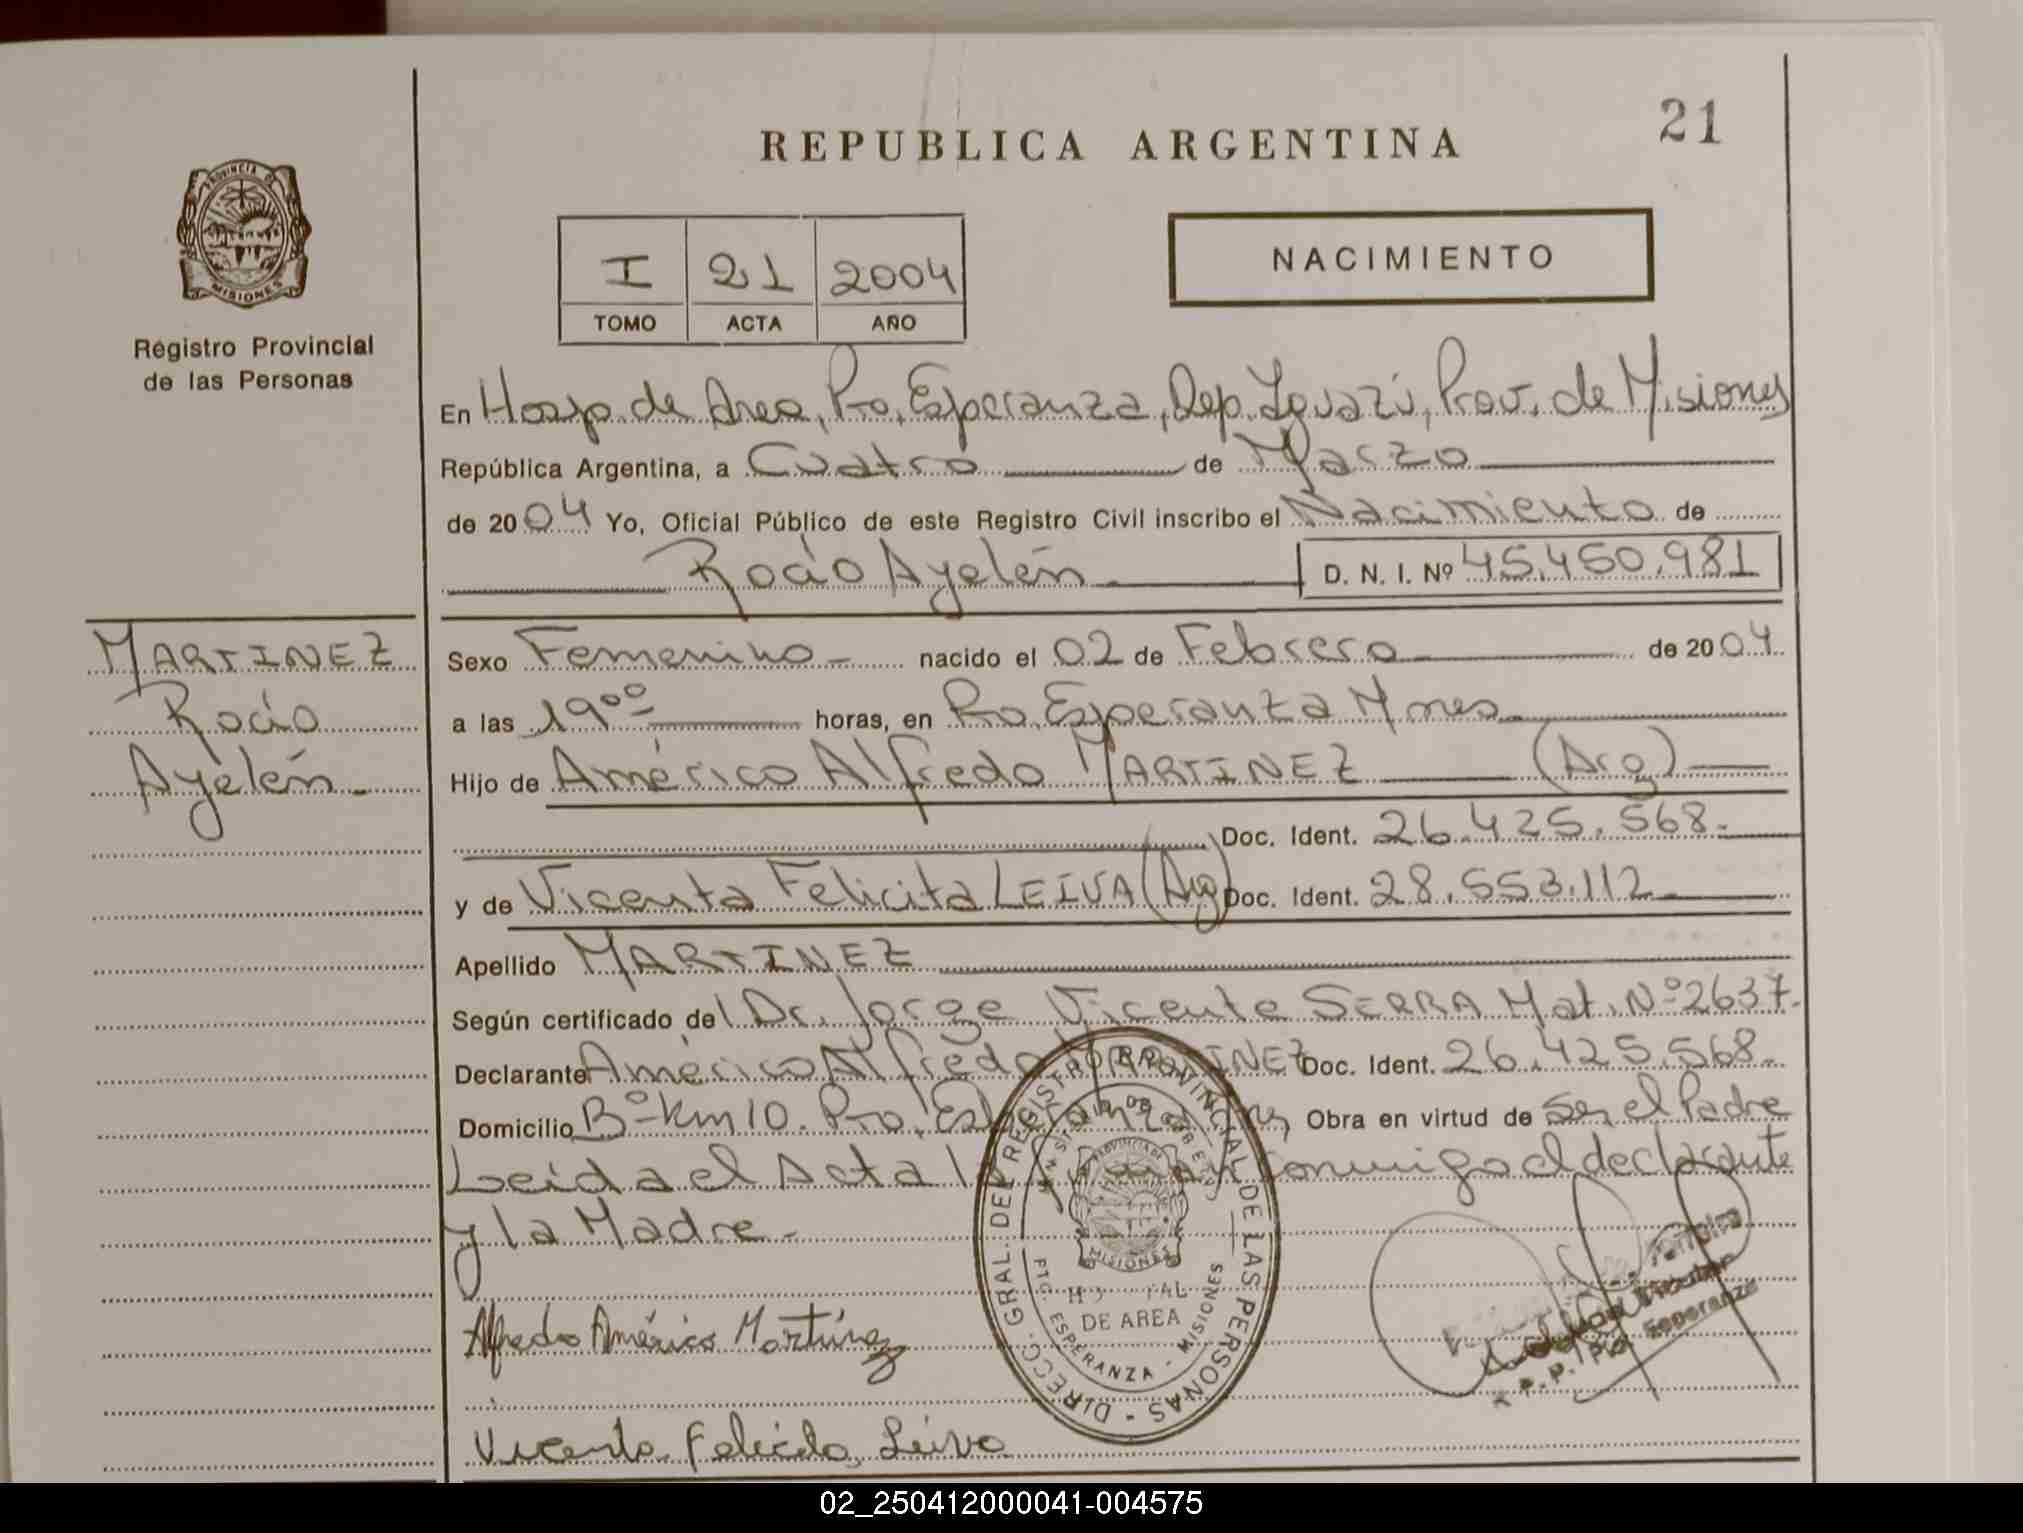 21
REPUBLICA ARGENTINA
PROVINCIA DE
MISIONES
Registro Provincial
de las Personas
I 21 2004
TOMO ACTA AÑO
NACIMIENTO
En Hosp. de Area, Pto. Esperanza, Dep. Iguazú, Prov. de Misiones
República Argentina, a Cuatro de Marzo
de 2004 Yo, Oficial Público de este Registro Civil inscribo el Nacimiento de
Rocío Ayelén D. N. I. Nº 45.450.981
MARTINEZ
Rocío
Ayelén
Sexo Femenino nacido el 02 de Febrero de 2004
a las 19ºº horas, en Pto. Esperanza Mnes
Hijo de Américo Alfredo MARTINEZ (Arg)
Doc. Ident. 26.425.568.
y de Vicenta Felicita LEIVA (Arg) Doc. Ident. 28.553.112
Apellido MARTINEZ
Según certificado del Dr. Jorge Vicente SERRA Mat. Nº 2637.
Declarante Américo Alfredo MARTINEZ Doc. Ident. 26.425.568.
Domicilio Bº Km 10. Pto. Esperanza Obra en virtud de Ser el Padre
Leida el Acta la conmigo el declarante
y la Madre.
DIRECC. GRAL. DEL REGISTRO PROVINCIAL DE LAS PERSONAS
MINISTERIO DE GOBIERNO
PROVINCIA DE
MISIONES
DE AREA
PTO. ESPERANZA - MISIONES
Alfredo Américo Martínez
Esperanza
Vicenta Felicita Leiva
02_250412000041-004575